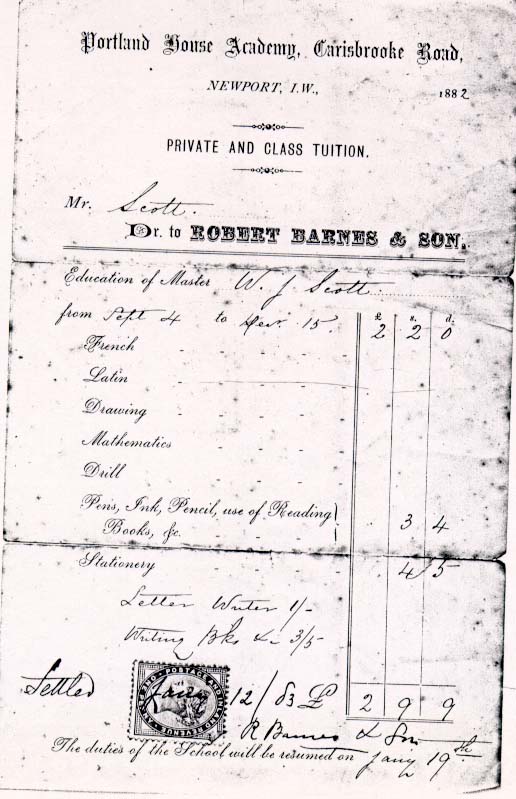 Portland House Academy, Carisbrooke Road,
NEWPORT, I.W., 1882
PRIVATE AND CLASS TUITION.
Mr. Scott.
Dr. to ROBERT BARNES & SON.
Education of Master W. J. Scott.
from Sept 4 to Dec. 15. £ s. d.
2 2 0
French
Latin
Drawing
Mathematics
Drill
Pens, Ink, Pencil, use of Reading
Books, &c. 3 4
Stationery 4 5
Letter Writer 1/-
Writing Bks &c 3/5
Settled Jany 12/83 £ 2 9 9
POSTAGE AND INLAND REVENUE
ONE PENNY
R Barnes & Son
The duties of the School will be resumed on Jany 19th